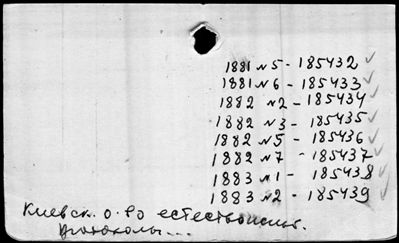 1881 №5 - 185432 ✓
1881 №6 - 185433 ✓
1882 №2 - 185434 ✓
1882 №3 - 185435 ✓
1882 №5 - 185436 ✓
1882 №7 - 185437 ✓
1883 №1 - 185438 ✓
1883 №2 - 185439 ✓
Киевск. о-во естествоисп.
Протоколы...